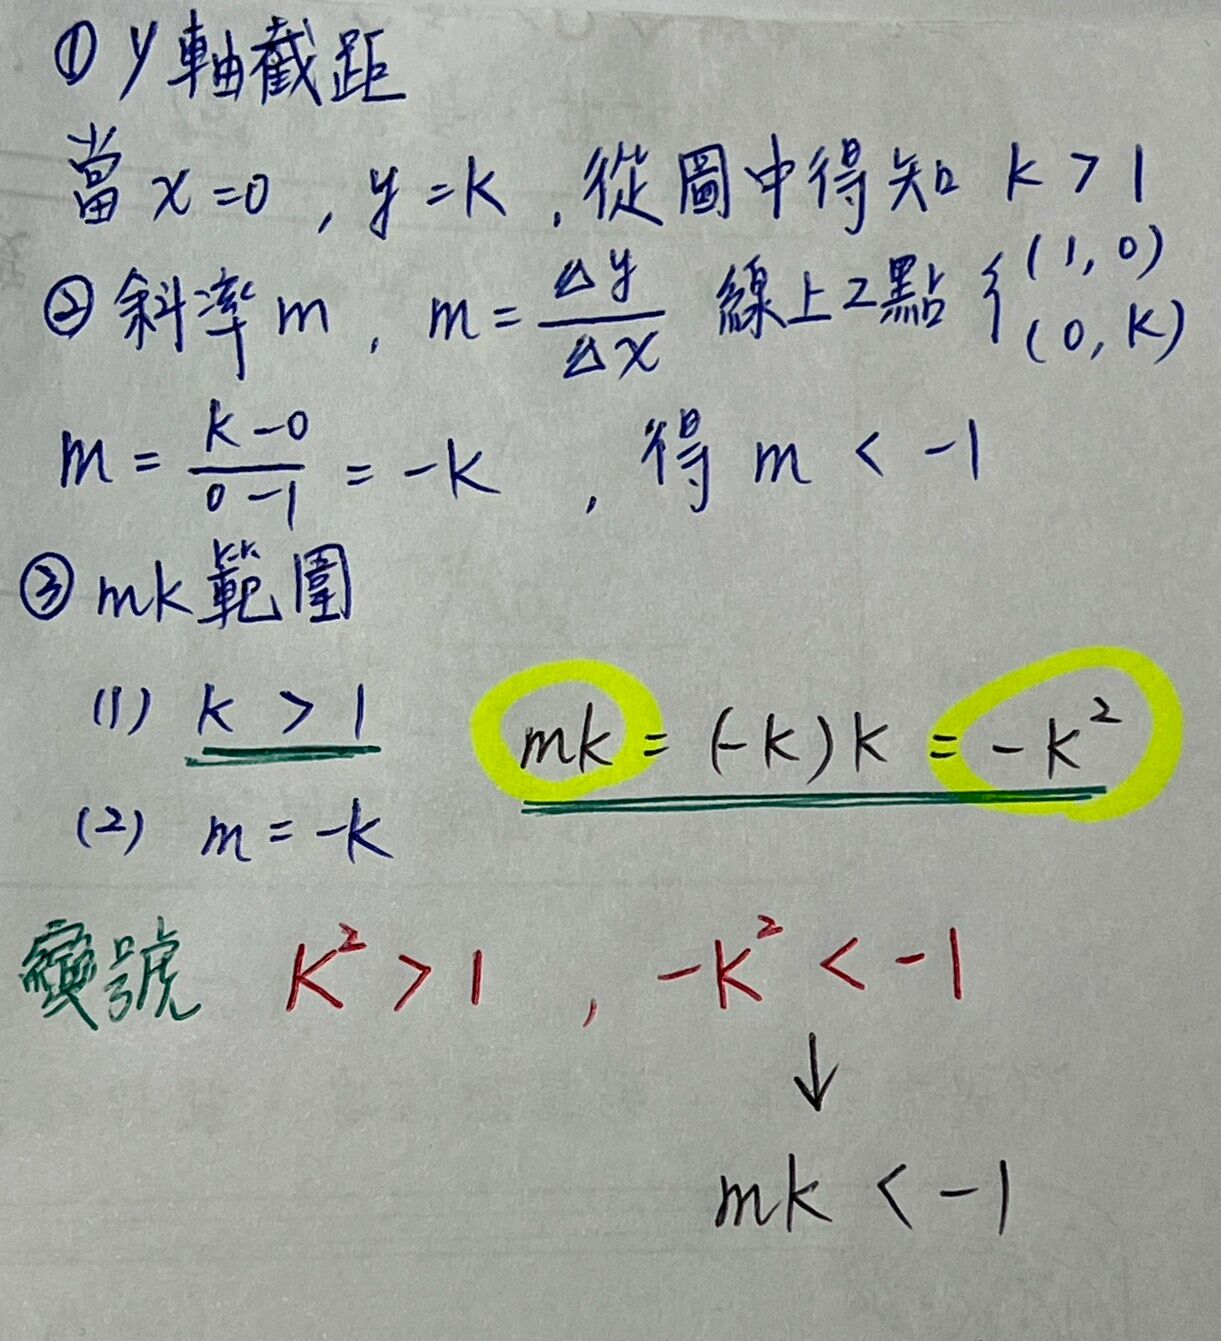 ① y軸截距
當 x=0 , y=k , 從圖中得知 k > 1
② 斜率 m , m = △y/△x 線上2點 { (1, 0) (0, k)
m = k-0/0-1 = -k , 得 m < -1
③ mk 範圍
(1) k > 1 mk = (-k)k = -k²
(2) m = -k
變號 k² > 1 , -k² < -1
↓
mk < -1